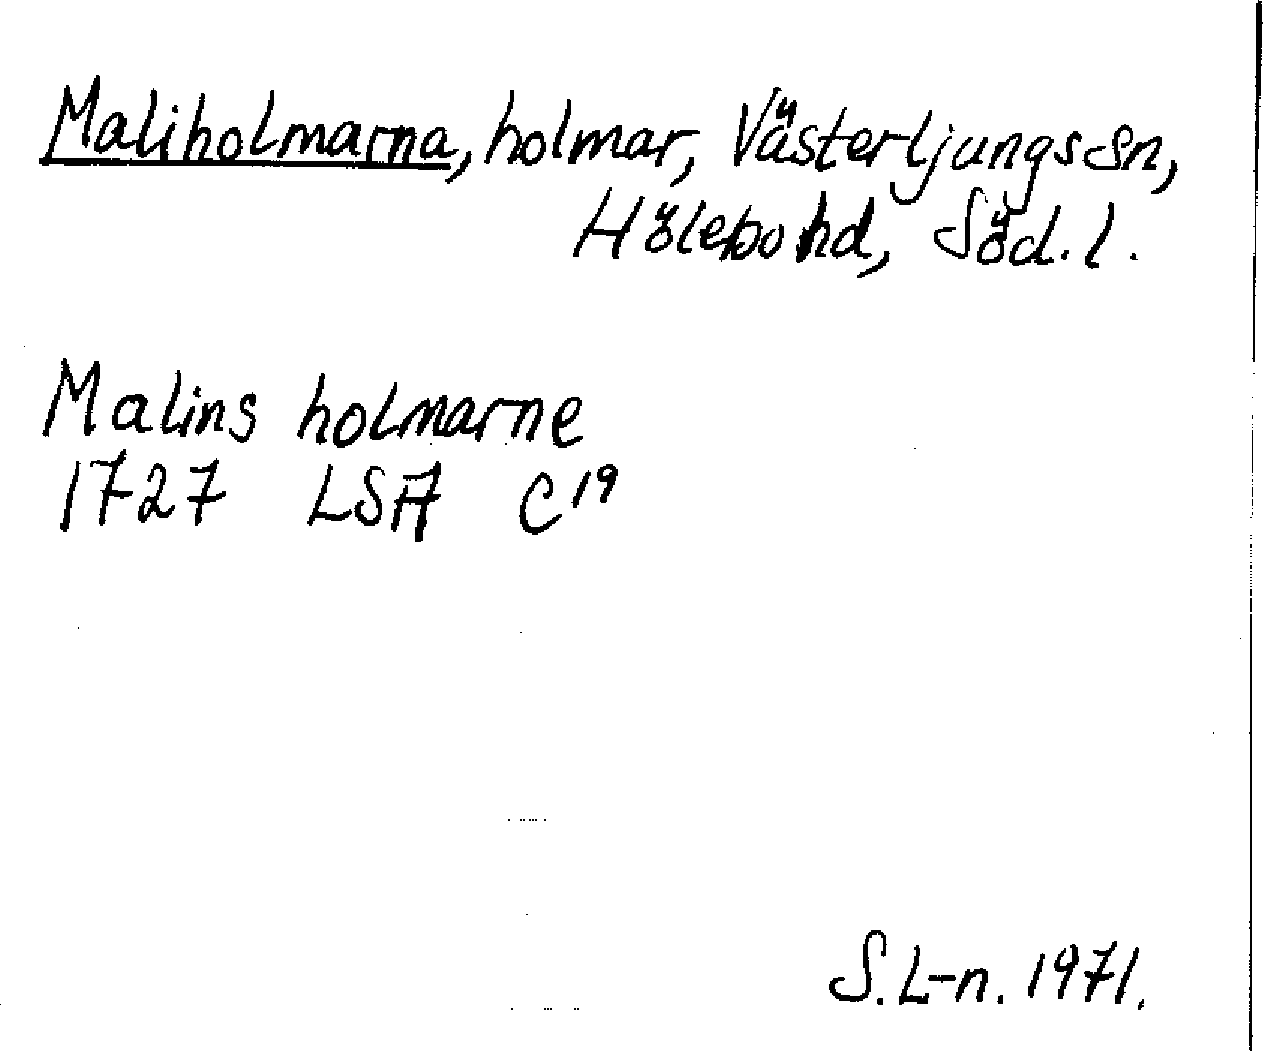 Maliholmarna, holmar, Västerljungs sn,
Hölebo hd, Söd. l.
Malins holmarne
1727 LSA C19
S. L-n. 1971.